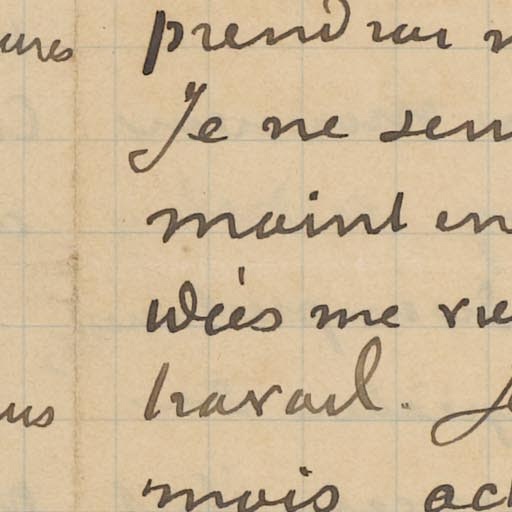 ures
prendrai
Je ne sen
maint en
idées me vie
travail. Je
mois ach